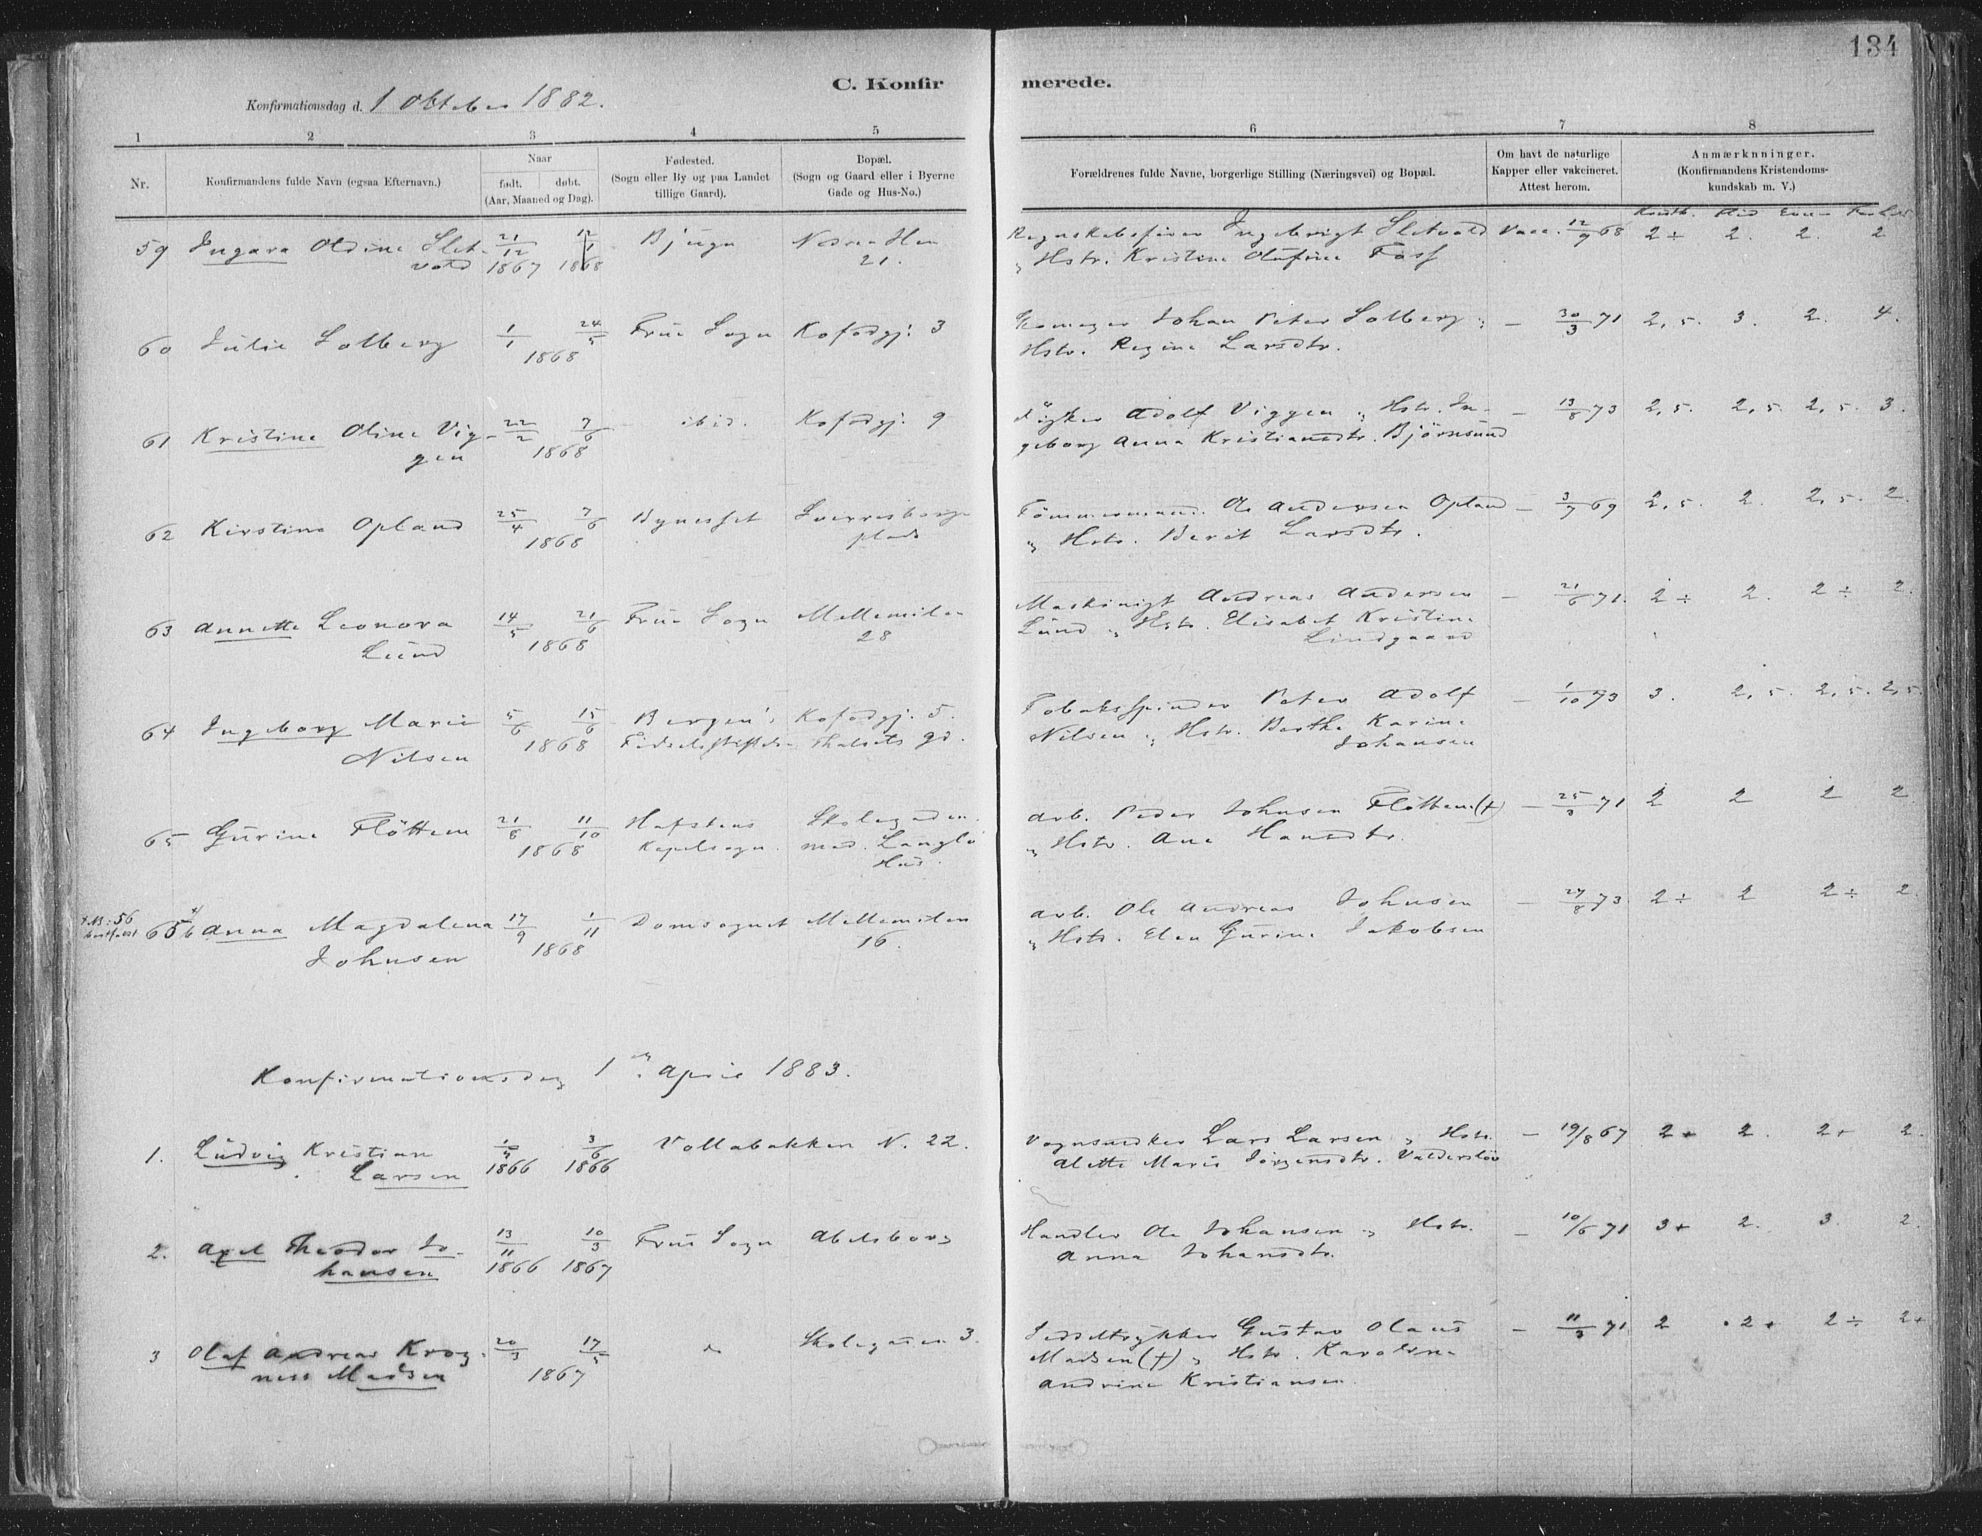 134
C. Konfirmerede.
Konfirmationsdag d. 1 Oktober 1882.
1 2 3 4 5 6 7 8
Nr.
Konfirmandens fulde Navn (egsaa Efternavn.)
Naar
født. døbt.
(Aar, Maaned og Dag).
Fødested.
(Sogn eller By og paa Landet
tillige Gaard).
Bopæl.
(Sogn og Gaard eller i Byerne
Gade og Hus-No.)
Forældrenes fulde Navne, borgerlige Stilling (Næringsvei) og Bopæl.
Om havt de naturlige
Kapper eller vakeineret.
Attest herom.
Anmærknninger.
(Konfirmandens Kristendoms-
kundskab m. V.)
59 Ingara Oldine Slet- 21/12 12/1 Bjugn Nedre Ilen Regnskabsfører Ingebrigt Sletvold Vacc. 12/9 68 2÷ 2. 2. 2
vold 1867 1868 21. „ Hstr. Kristine Olufine Foss
60 Julie Solberg 1/1 24/5 Frue Sogn Kofodgj. 3 Skomager Johan Peter Solberg „ — 30/3 71 2,5. 3. 2. 4.
1868 Hstr. Regine Larsdtr.
61 Kristine Oline Vig- 22/2 7/6 ibid. Kofodgj. 9 Adolf Viggen „ Hstr. In- — 13/8 73 2,5. 2,5. 2,5. 3.
gen 1868 geborg Anna Kristiansdtr. Björnsund
62 Kirstine Opland 25/4 7/6 Bynesset Sverresborgs Tömmermand Ole Andersen Opland — 3/9 69 2,5. 2. 2,5. 2.
1868 plads „ Hstr. Berit Larsdtr.
63 Annette Leonora 14/5 21/6 Frue Sogn Mellemilen Maskinigt Andreas Andersen — 21/6 71. 2÷ 2. 2÷ 2.
Lund 1868 28 Lund „ Hstr. Elisabet Kristine
Lindgaard
64 Ingeborg Marie 5/6 15/6 Bergen's Kofodgj. 5. Tobaksspinder Peter Adolf — 1/10 73 3. 2,5. 2,5. 2,5.
Nilsen 1868 Födselsstiftelse gd. Nilsen „ Hstr. Berthe Karine
Johansen
65 Gurine Flöttem 21/8 11/10 Hafstens Skolegaden. arb. Peder Johnsen Flöttem (†) — 25/3 71 2 2 2 2
1868 Kapelsogn. mad. Langlö „ Hstr. Ane Hansdtr.
Hus.
65b Anna Magdalena 17/9 1/11 Domsognet Mellemilen arb. Ole Andreas Johnsen — 27/8 73 2÷ 2 2÷ 2.
Johnsen 1868 16. „ Hstr. Elen Gurine Jakobsen
Konfirmationsdag 1. April 1883.
1. Ludvig Kristian 3/6 Vollabakken N. 22. Vognsmker Lars Larsen „ Hstr. — 19/8 67 2+ 2. 2+ 2.
Larsen 1866 1866 Alette Marie Jörgensdtr. Valderslöv
2. Axel Theodor Jo- 13/11 10/3 Frue Sogn Abelsborg Handler Ole Johansen „ Hstr. — 10/6 71 3+ 2. 3. 2.
hansen 1866 1867 Anna Johansdtr.
3 Olaf Andreas Krog- 20/3 17/5 Skolegaden 3. Gustav Olaus — 11/3 71 2 2+ 2÷ 2+
ness Madsen 1867 Madsen (†) „ Hstr. Karoline
Andrine Kristiansen.